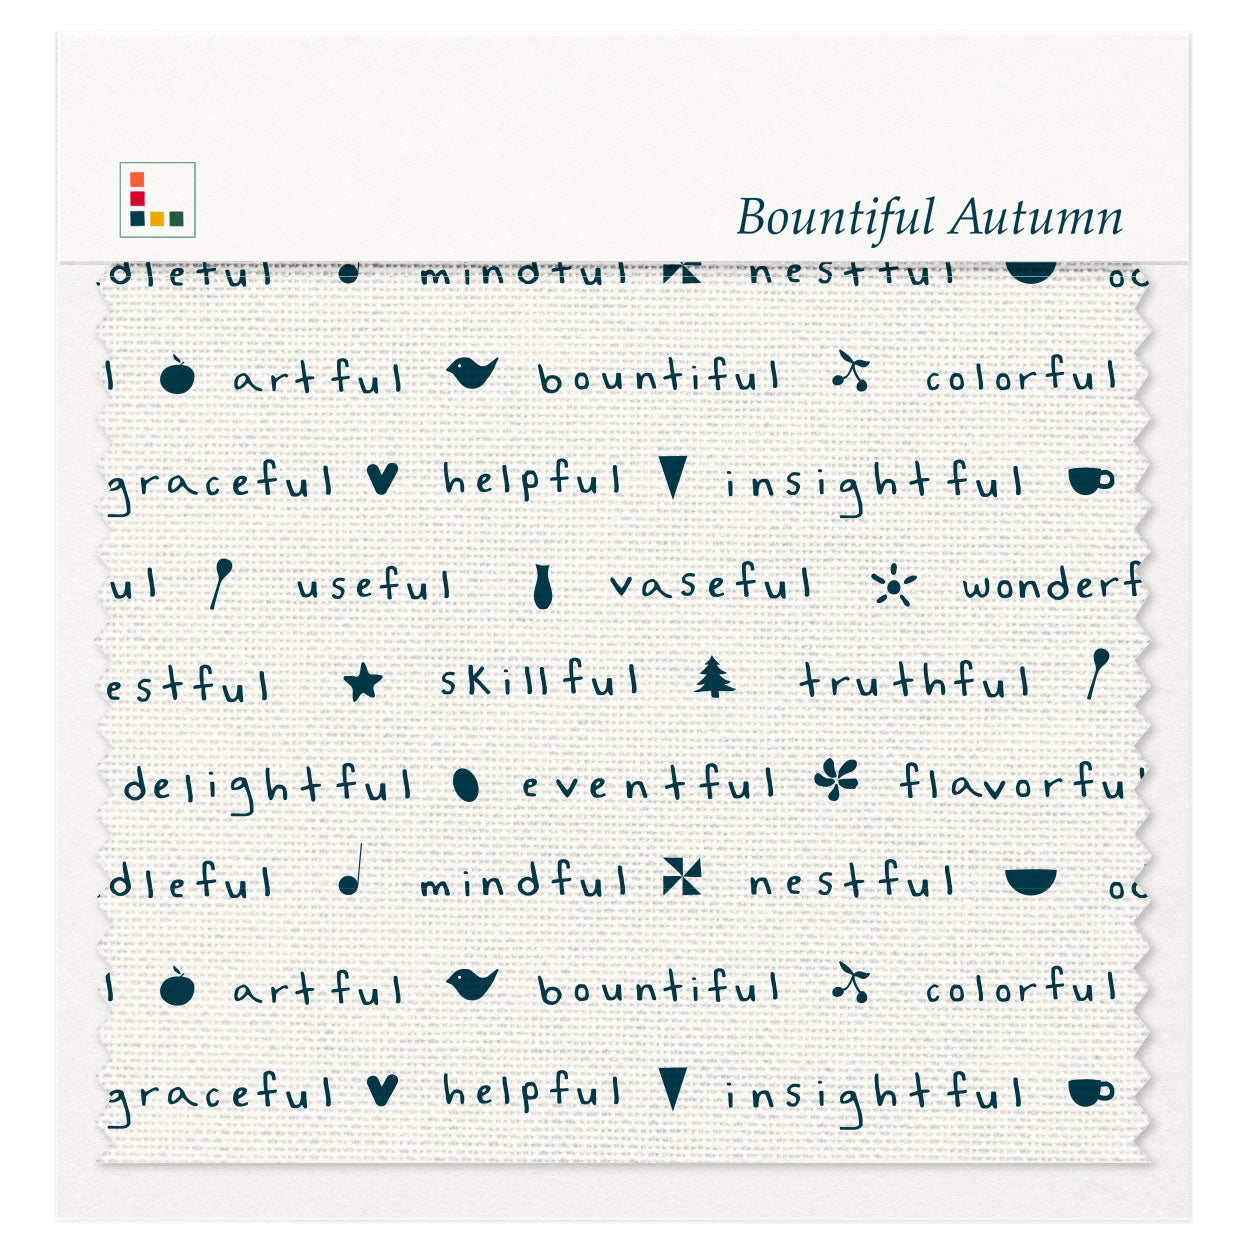 Bountiful Autumn
mindful nestful
artful bountiful colorful
graceful helpful insightful
useful vaseful
skillful truthful
delightful eventful
mindful nestful
artful bountiful colorful
graceful helpful insightful